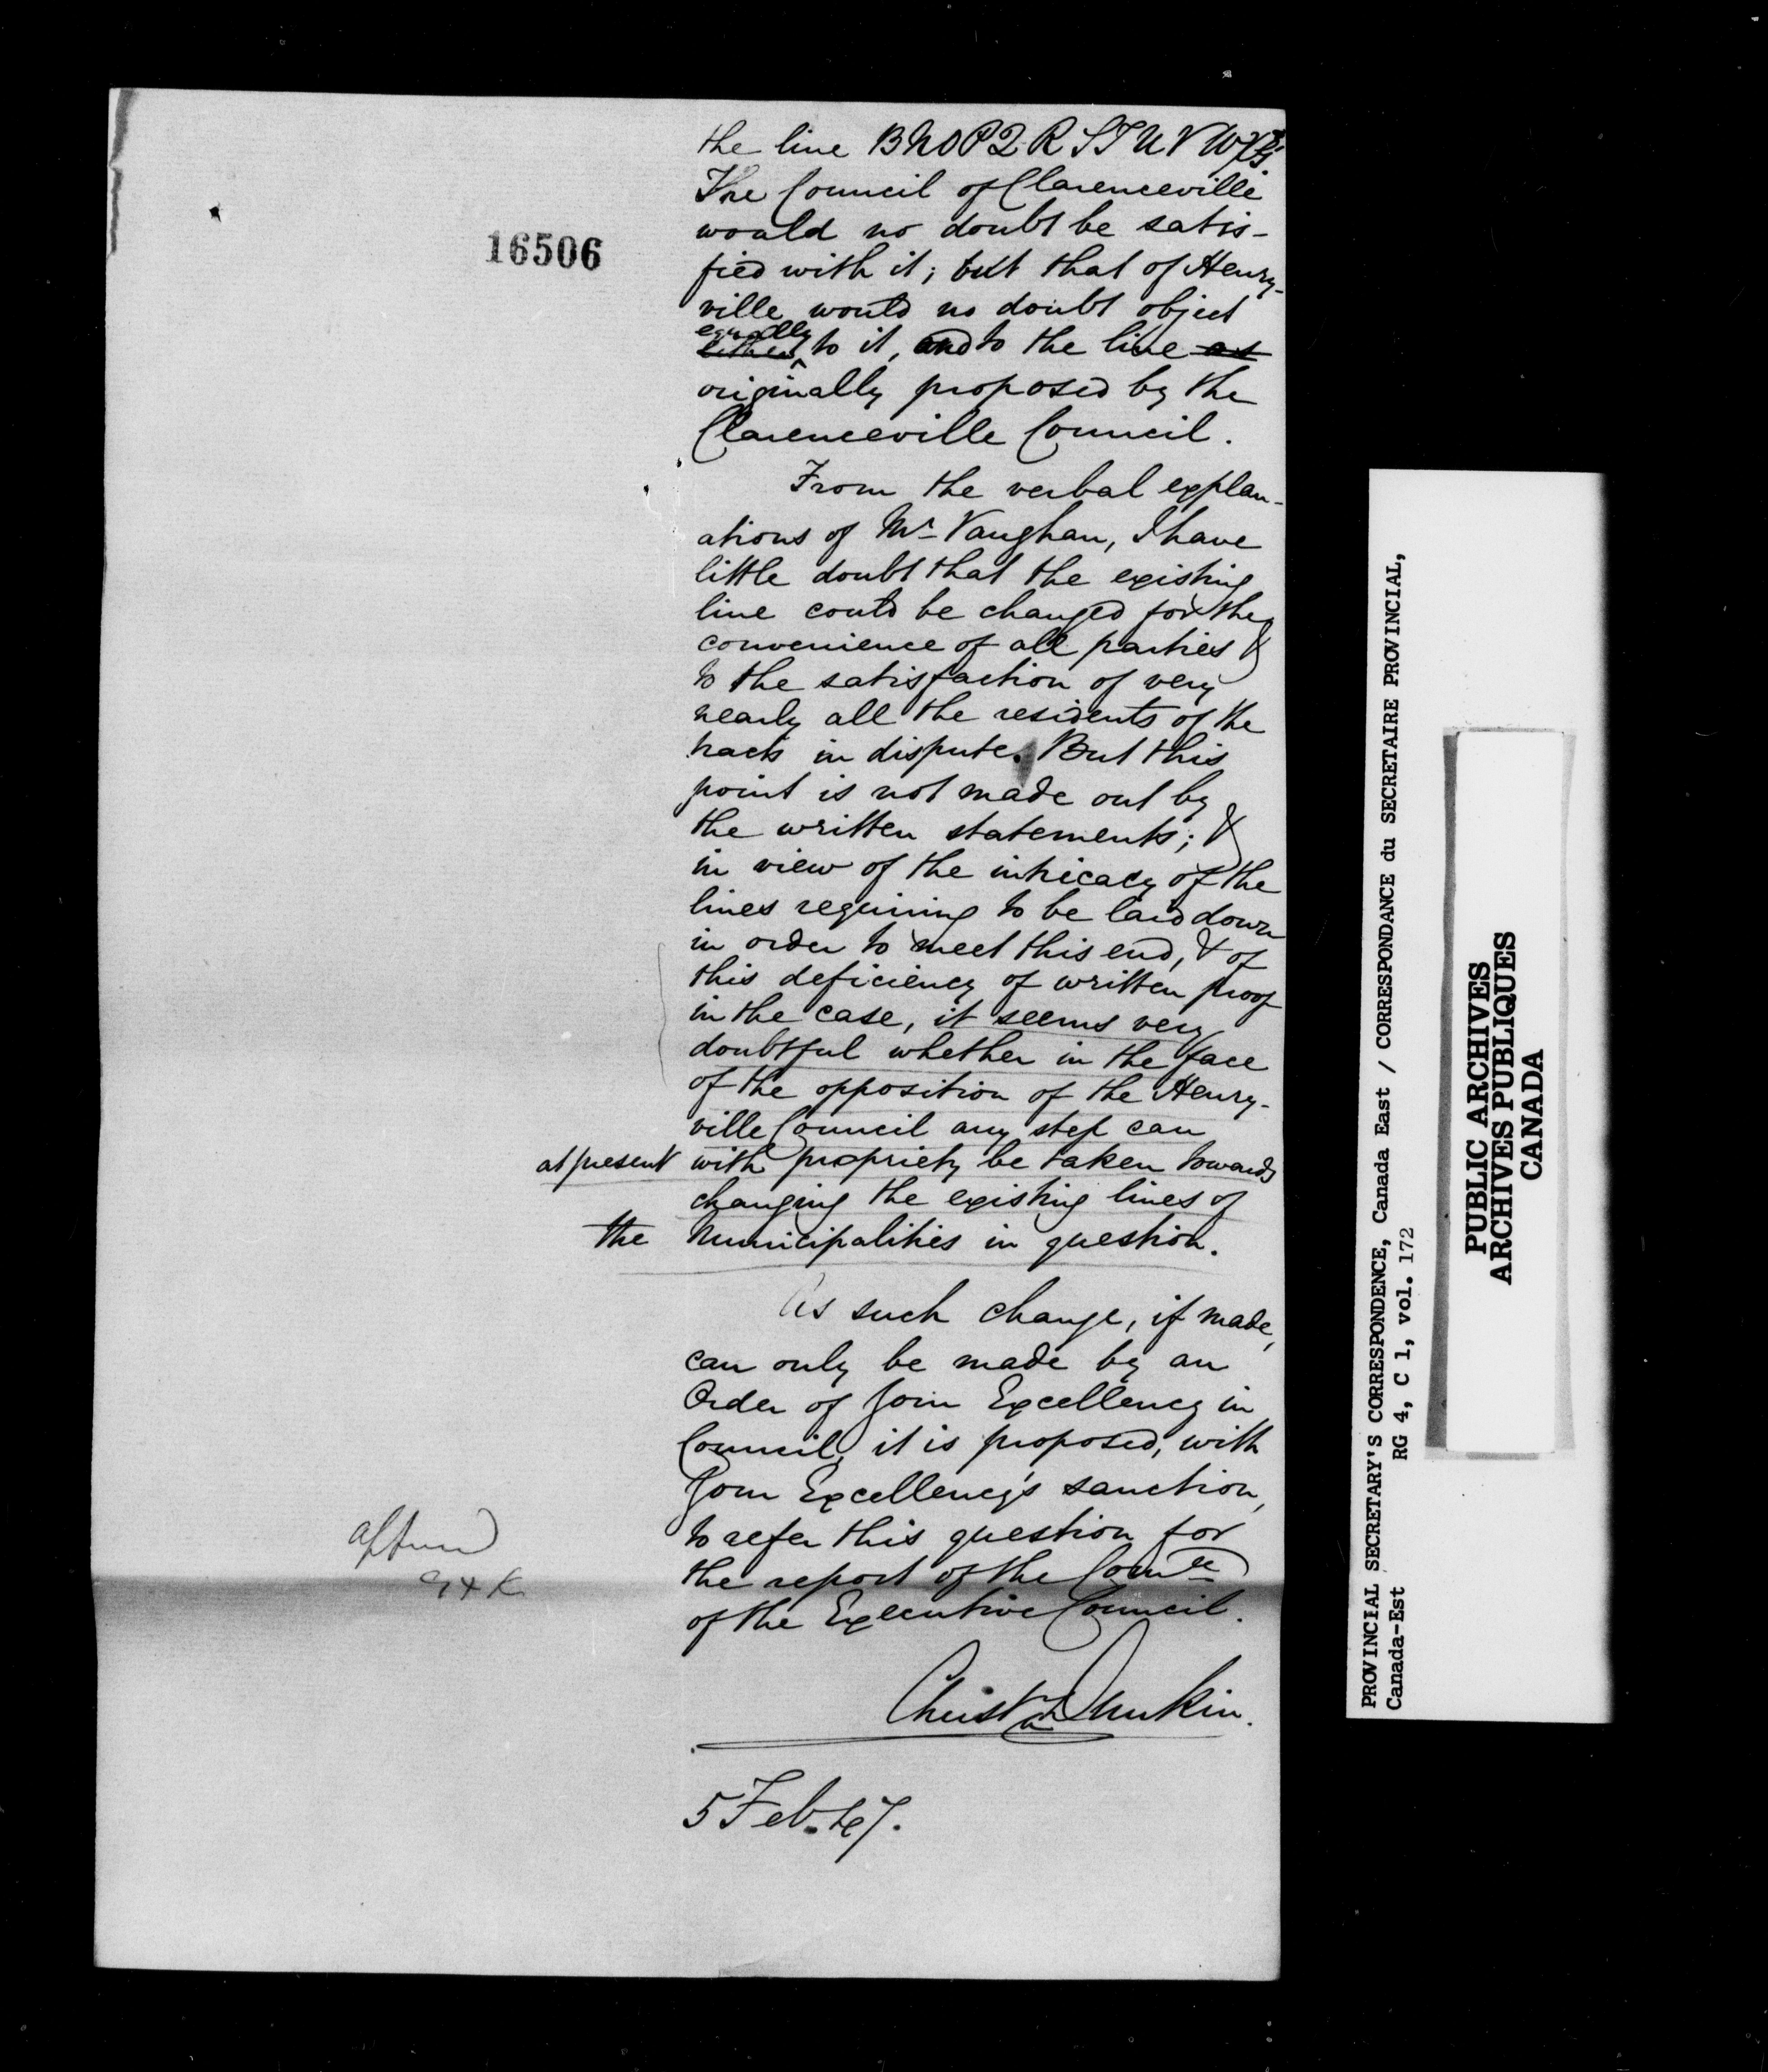 16506
the line B N O P Q R S T U V W X
The Council of Clarenceville
would no doubt be satis-
fied with it; but that of Henry-
ville would no doubt object
equally to it, and to the line as
originally proposed by the
Clarenceville Council.
From the verbal explan-
ations of Mr Vaughan, I have
little doubt that the existing
line could be changed for the
convenience of all parties &
to the satisfaction of very
nearly all the residents of the
tract in dispute. But this
point is not made out by
the written statements; &
in view of the intricacy of the
lines requiring to be laid down
in order to meet this end, & of
this deficiency of written proof
in the case, it seems very
doubtful whether in the face
of the opposition of the Henry-
ville Council any step can
at present with propriety be taken towards
changing the existing lines of
the Municipalities in question.
As such change, if made,
can only be made by an
Order of Your Excellency in
Council, it is proposed, with
Your Excellency's sanction,
to refer this question for
the report of the Comtee
of the Executive Council.
Christr Dunkin.
5 Feb. 47.
PROVINCIAL SECRETARY'S CORRESPONDENCE, Canada East / CORRESPONDANCE du SECRETAIRE PROVINCIAL,
Canada-Est RG 4, C 1, vol. 172
PUBLIC ARCHIVES
ARCHIVES PUBLIQUES
CANADA